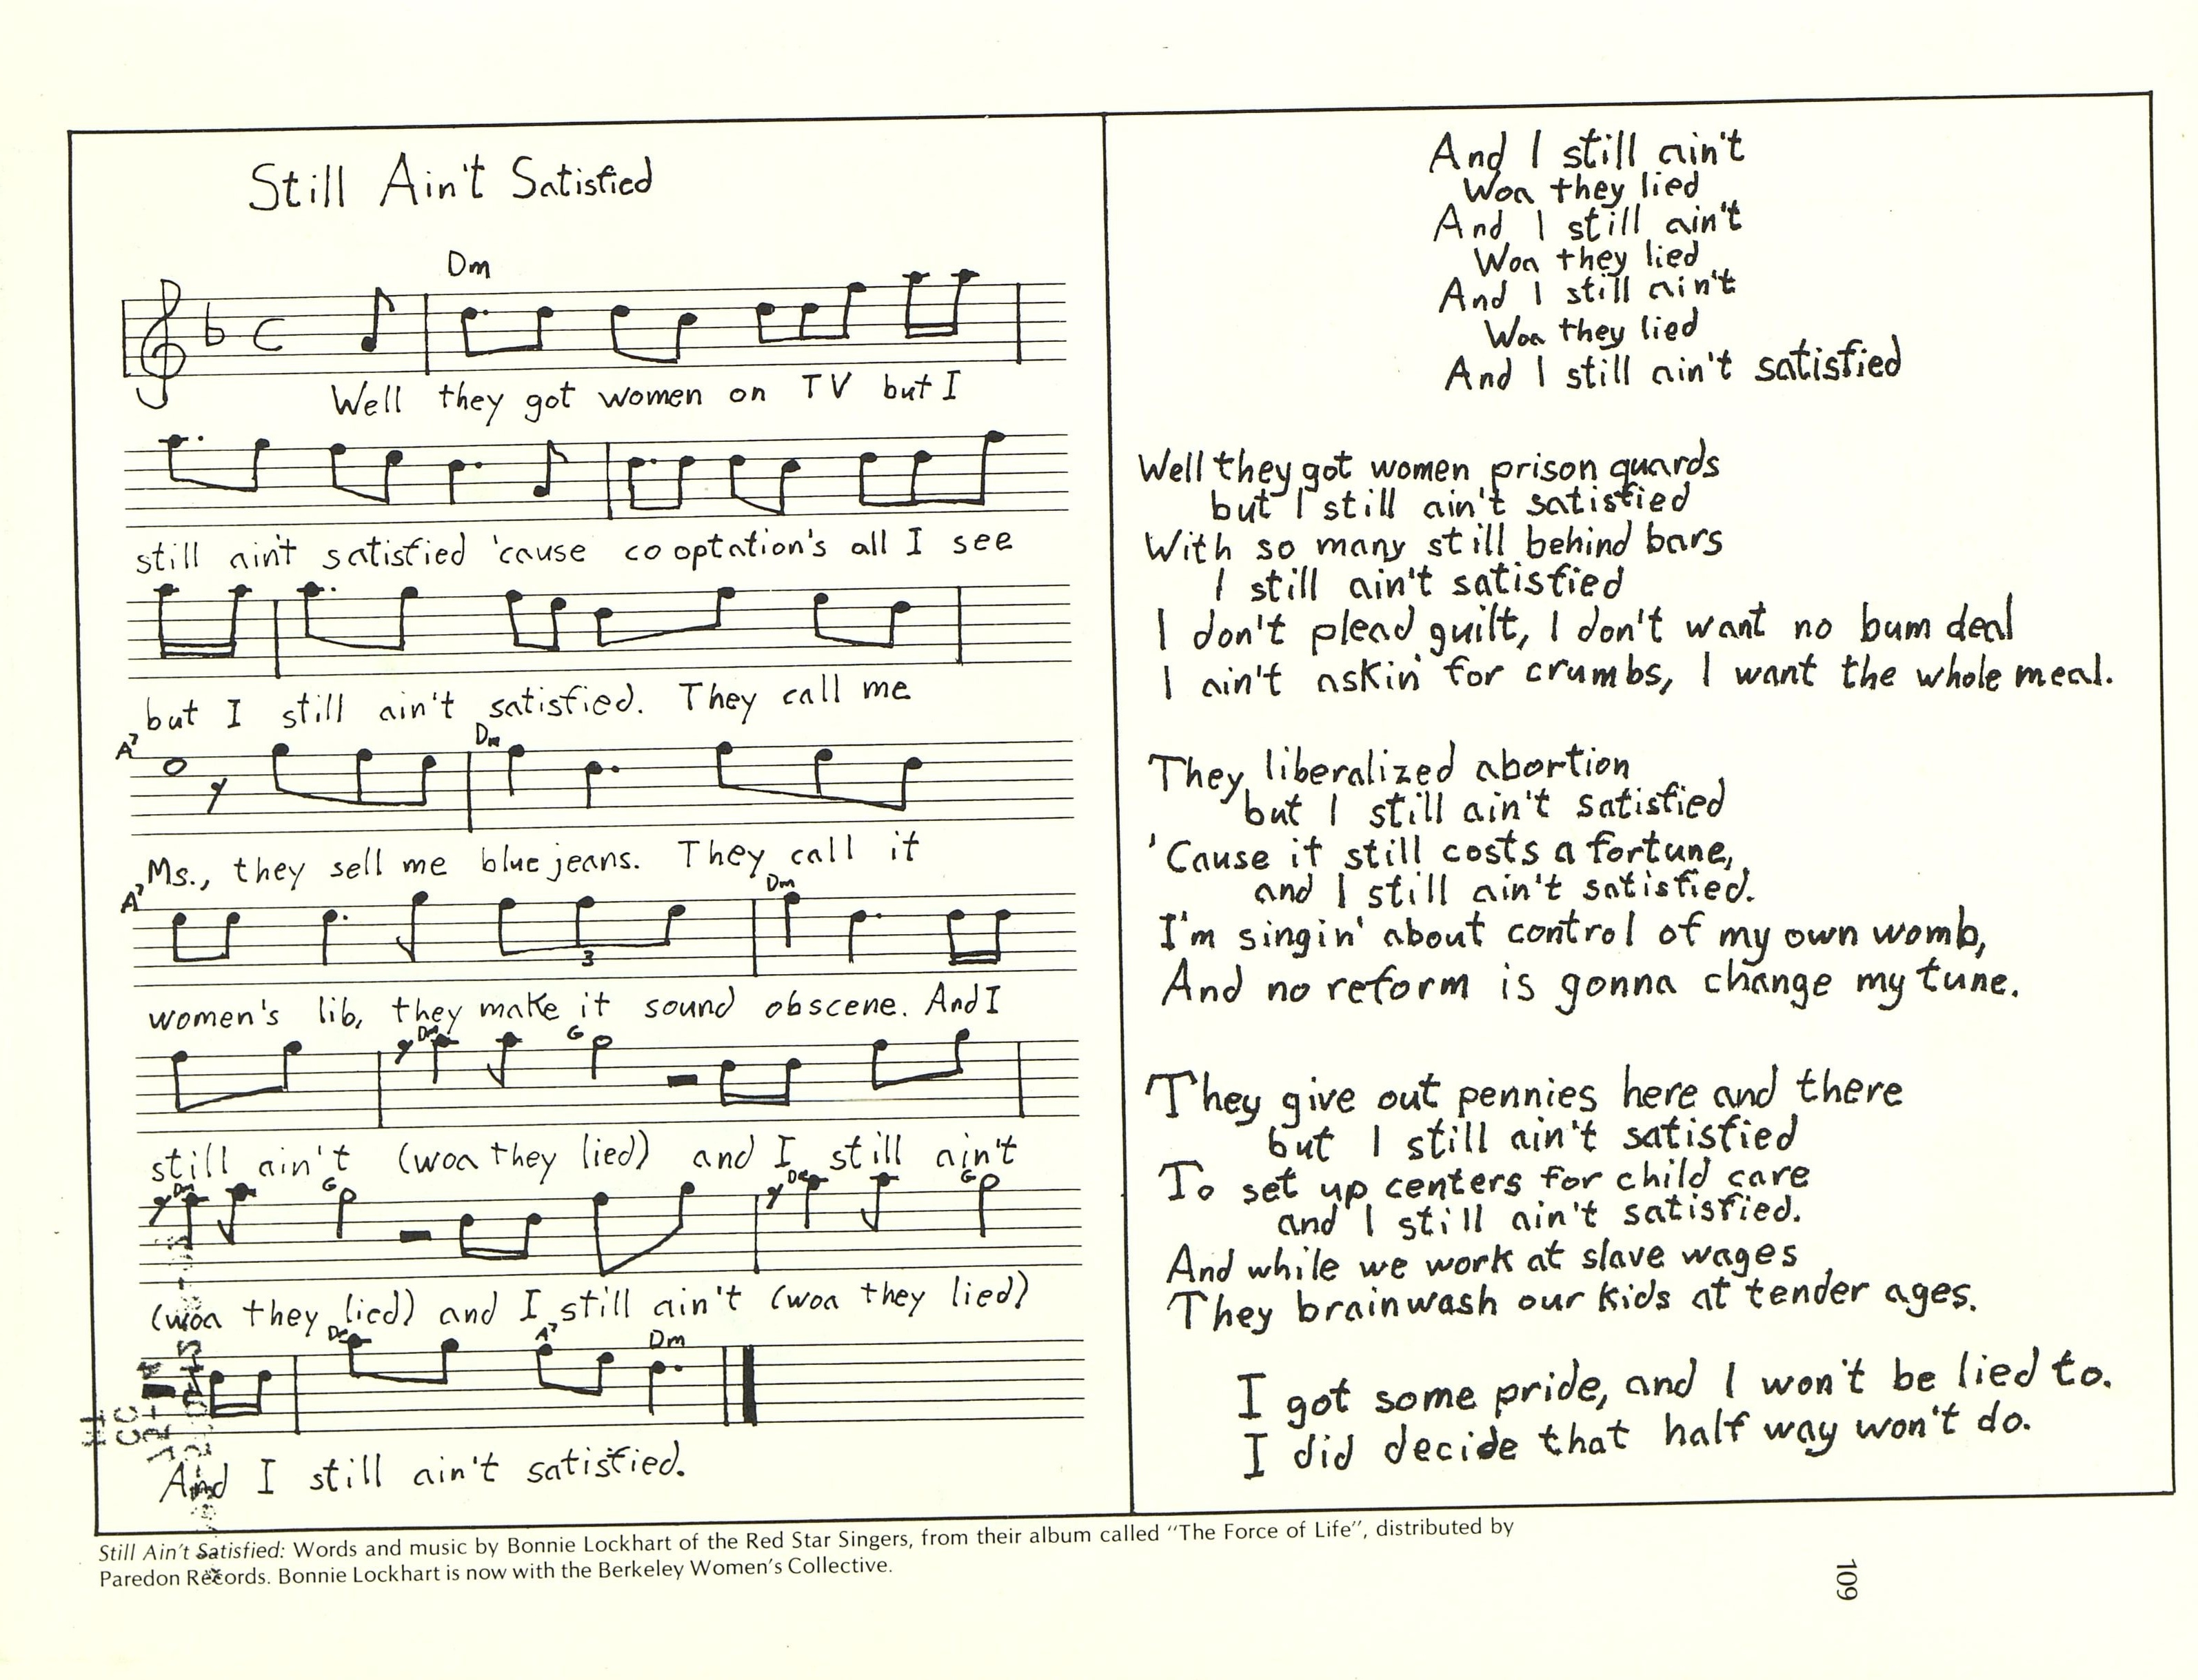 Still Ain't Satisfied
Dm
Well they got women on TV but I
still ain't satisfied 'cause co optation's all I see
but I still ain't satisfied. They call me
A7 Dm
Ms., they sell me blue jeans. They call it
A7 Dm
women's lib, they make it sound obscene. And I
Dm G
still ain't (woa they lied) and I still ain't
Dm G Dm G
(woa they lied) and I still ain't (woa they lied)
Dm A7 Dm
And I still ain't satisfied.
And I still ain't
Woa they lied
And I still ain't
Woa they lied
And I still ain't
Woa they lied
And I still ain't satisfied
Well they got women prison guards
but I still ain't satisfied
With so many still behind bars
I still ain't satisfied
I don't plead guilt, I don't want no bum deal
I ain't askin' for crumbs, I want the whole meal.
They liberalized abortion
but I still ain't satisfied
'Cause it still costs a fortune,
and I still ain't satisfied.
I'm singin' about control of my own womb,
And no reform is gonna change my tune.
They give out pennies here and there
but I still ain't satisfied
To set up centers for child care
and I still ain't satisfied.
And while we work at slave wages
They brainwash our kids at tender ages.
I got some pride, and I won't be lied to.
I did decide that half way won't do.
Still Ain't Satisfied: Words and music by Bonnie Lockhart of the Red Star Singers, from their album called "The Force of Life", distributed by
Paredon Records. Bonnie Lockhart is now with the Berkeley Women's Collective.
109